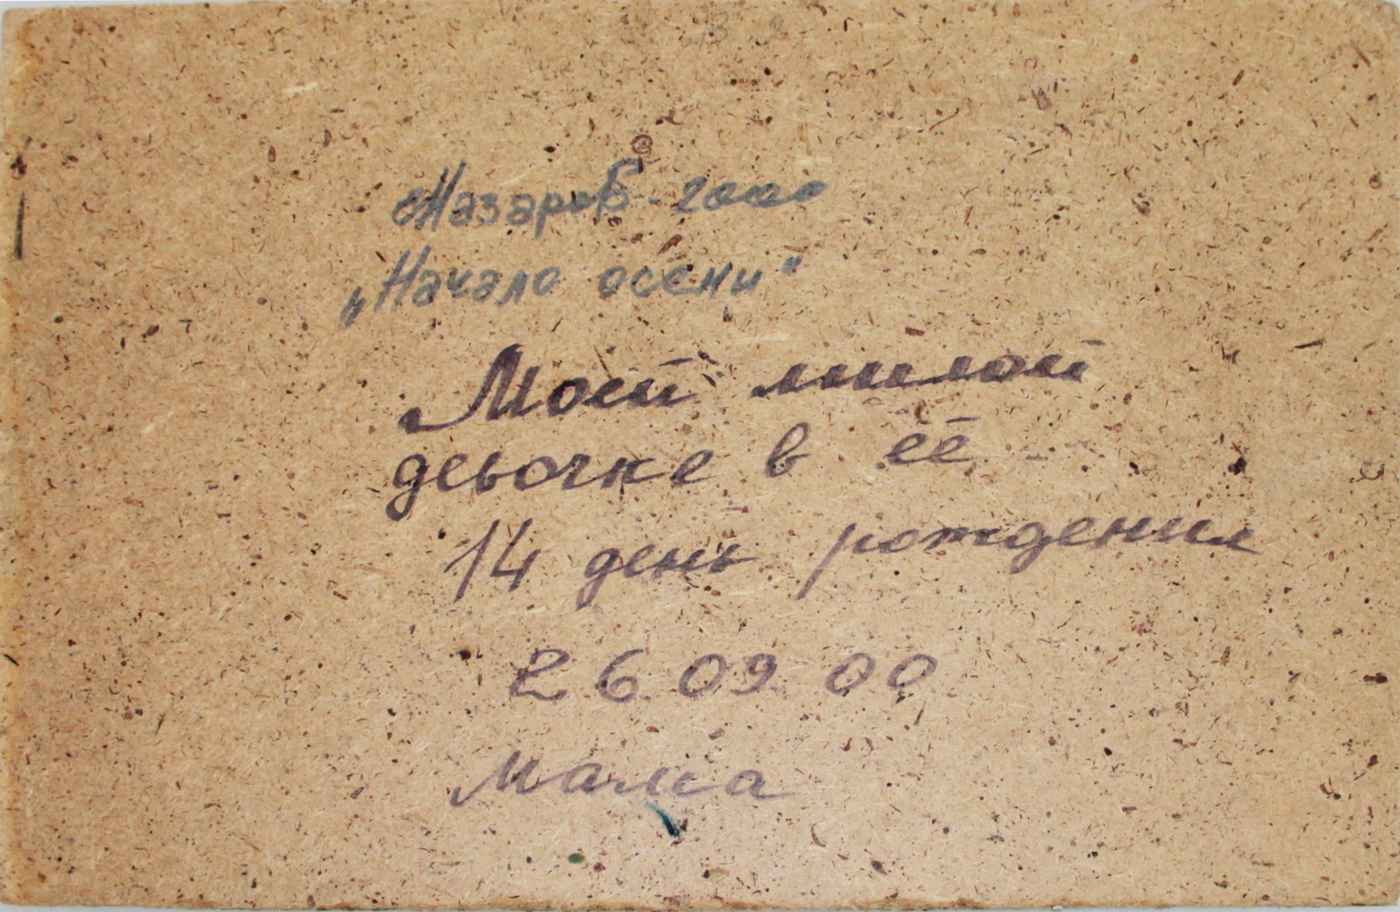 Назаров-2000
„Начало осени"
Моей милой
девочке в её
14 день рождения
26.09.00
Мама